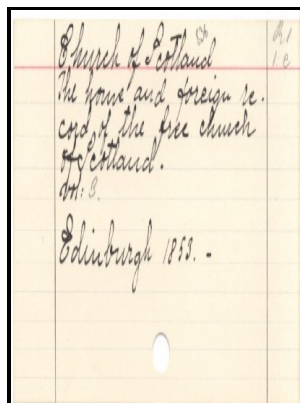 Church of Scotland
The home and foreign re-
cord of the free church
of Scotland.
Vol: 3.
Edinburgh 1853. -